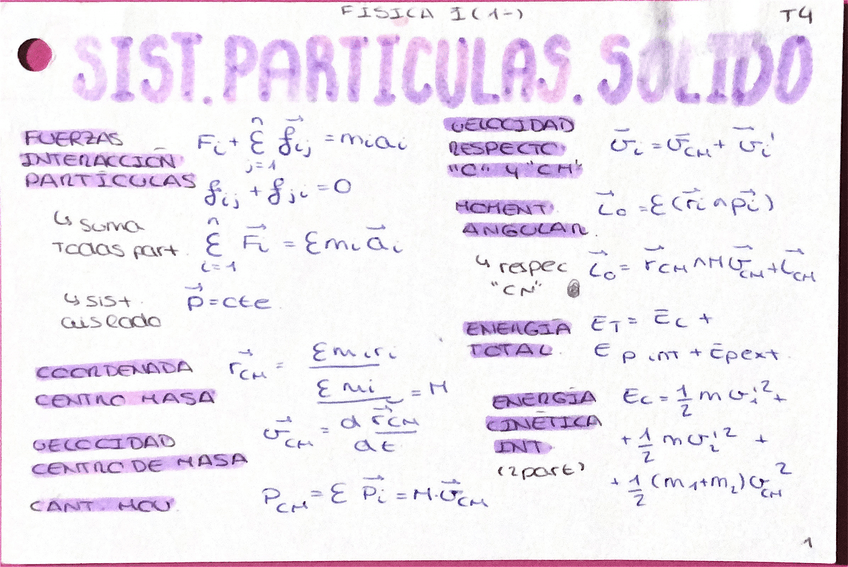 FISICA I (1-)
T4
SIST. PARTICULAS. SOLIDO
FUERZAS
INTERACCIÓN
PARTÍCULAS
Fi + Σ(j=1→n) f⃗ij = miai
fij + fji = 0
↳ suma
todas part.
Σ(i=1→n) F⃗i = Σmia⃗i
↳ sist.
aislado
p⃗ = cte
COORDENADA
CENTRO MASA
r⃗CM = Σmiri / Σmi = M
VELOCIDAD
CENTRO DE MASA
v⃗CM = d r⃗CM / dt
CANT. MOV.
PCM = Σ P⃗i = M·v⃗CM
VELOCIDAD
RESPECTO
"C" Y "CM"
v⃗i = v⃗CM + v⃗i'
MOMENT.
ANGULAR.
L⃗o = Σ(r⃗i ∧ p⃗i)
↳ respec
"CM"
L⃗o = r⃗CM ∧ M v⃗CM + L⃗CM
ENERGÍA
TOTAL.
ET = Ec +
Ep int + Epext.
ENERGÍA
CINÉTICA
INT
(2part)
Ec = 1/2 m v1'² +
+ 1/2 m v2'² +
+ 1/2 (m1+m2) vCM²
1